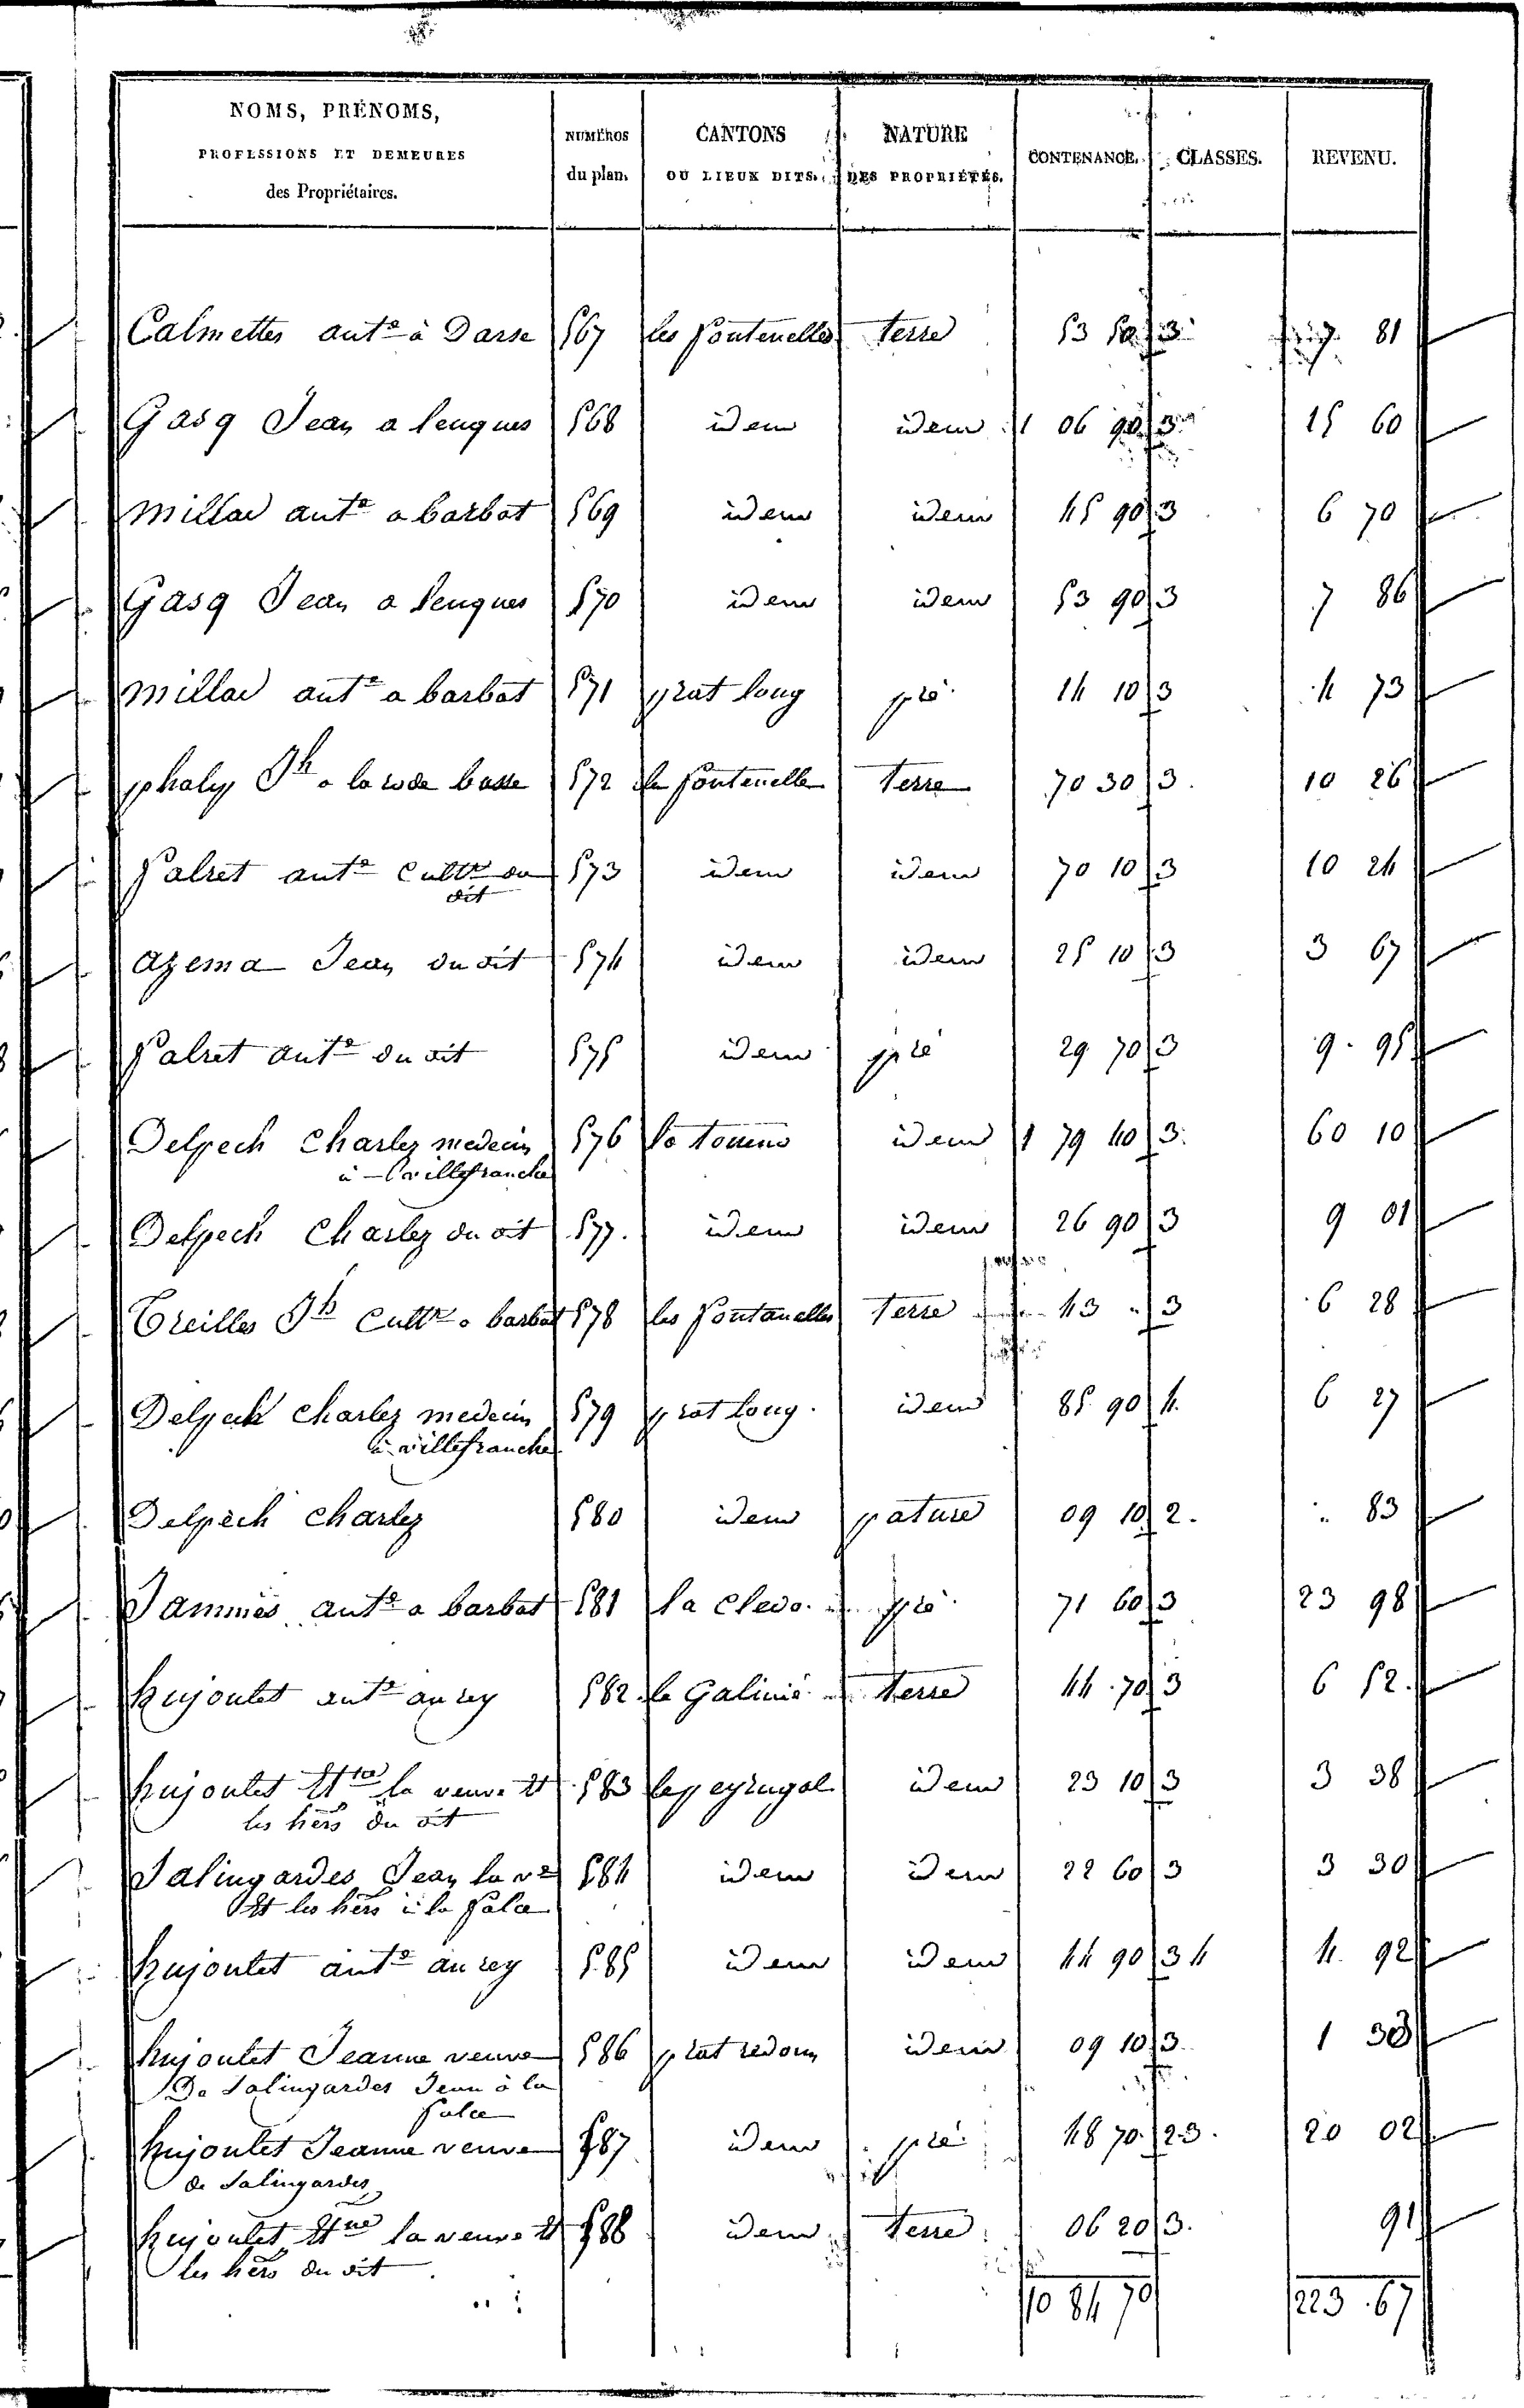 NOMS, PRÉNOMS, PROFESSIONS ET DEMEURES des Propriétaires. NUMÉROS du plan. CANTONS OU LIEUX DITS. NATURE DES PROPRIÉTÉS. CONTENANCE. CLASSES. REVENU.
Calmettes ant.e à Darse 567 les fontenelles terre 53 50 3 7 81
Gasq Jean a lenques 568 idem idem 1 06 90 3 15 60
millac ant.e a barbat 569 idem idem 45 90 3 6 70
Gasq Jean a lenques 570 idem idem 53 90 3 7 86
millac ant.e a barbat 571 prat long pré 14 10 3 4 73
phalip Jh a la rode basse 572 la fontenelle terre 70 30 3 10 26
falret ant.e cultr du 573 idem idem 70 10 3 10 24
dit
azema Jean du dit 574 idem idem 25 10 3 3 67
falret ant.e du dit 575 idem pré 29 70 3 9 95
Delpech Charlez medecin 576 idem 1 79 40 3 60 10
à villefranche
Delpech Charlez du dit 577 idem idem 26 90 3 9 01
Treilles Jh cultr a barbat 578 les fontanelles terre 43 " 3 6 28
Delpech charlez medecin 579 prat long idem 85 90 4 6 27
à villefranche
Delpech charlez 580 idem pature 09 10 2 " 83
Jammes ant.e a barbat 581 la cleda pré 71 60 3 23 98
hujoulet ant.e au rey 582 le Galinié terre 44 70 3 6 52
hujoulet la veuve et 583 le peyrugal idem 23 10 3 3 38
les hers du dit
Salingardes Jean la ve 584 idem idem 22 60 3 3 30
et les hers à la falce
hujoulet ant.e au rey 585 idem idem 44 90 3 4 4 92
hujoulet Jeanne veuve 586 prat redoun idem 09 10 3 1 33
De Salingardes Jean à la
falce
hujoulet Jeanne veuve 587 idem pré 48 70 2 3 20 02
de Salingardes
hujoulet la veuve et 588 idem terre 06 20 3 91
les hers du dit
10 84 70 223 67